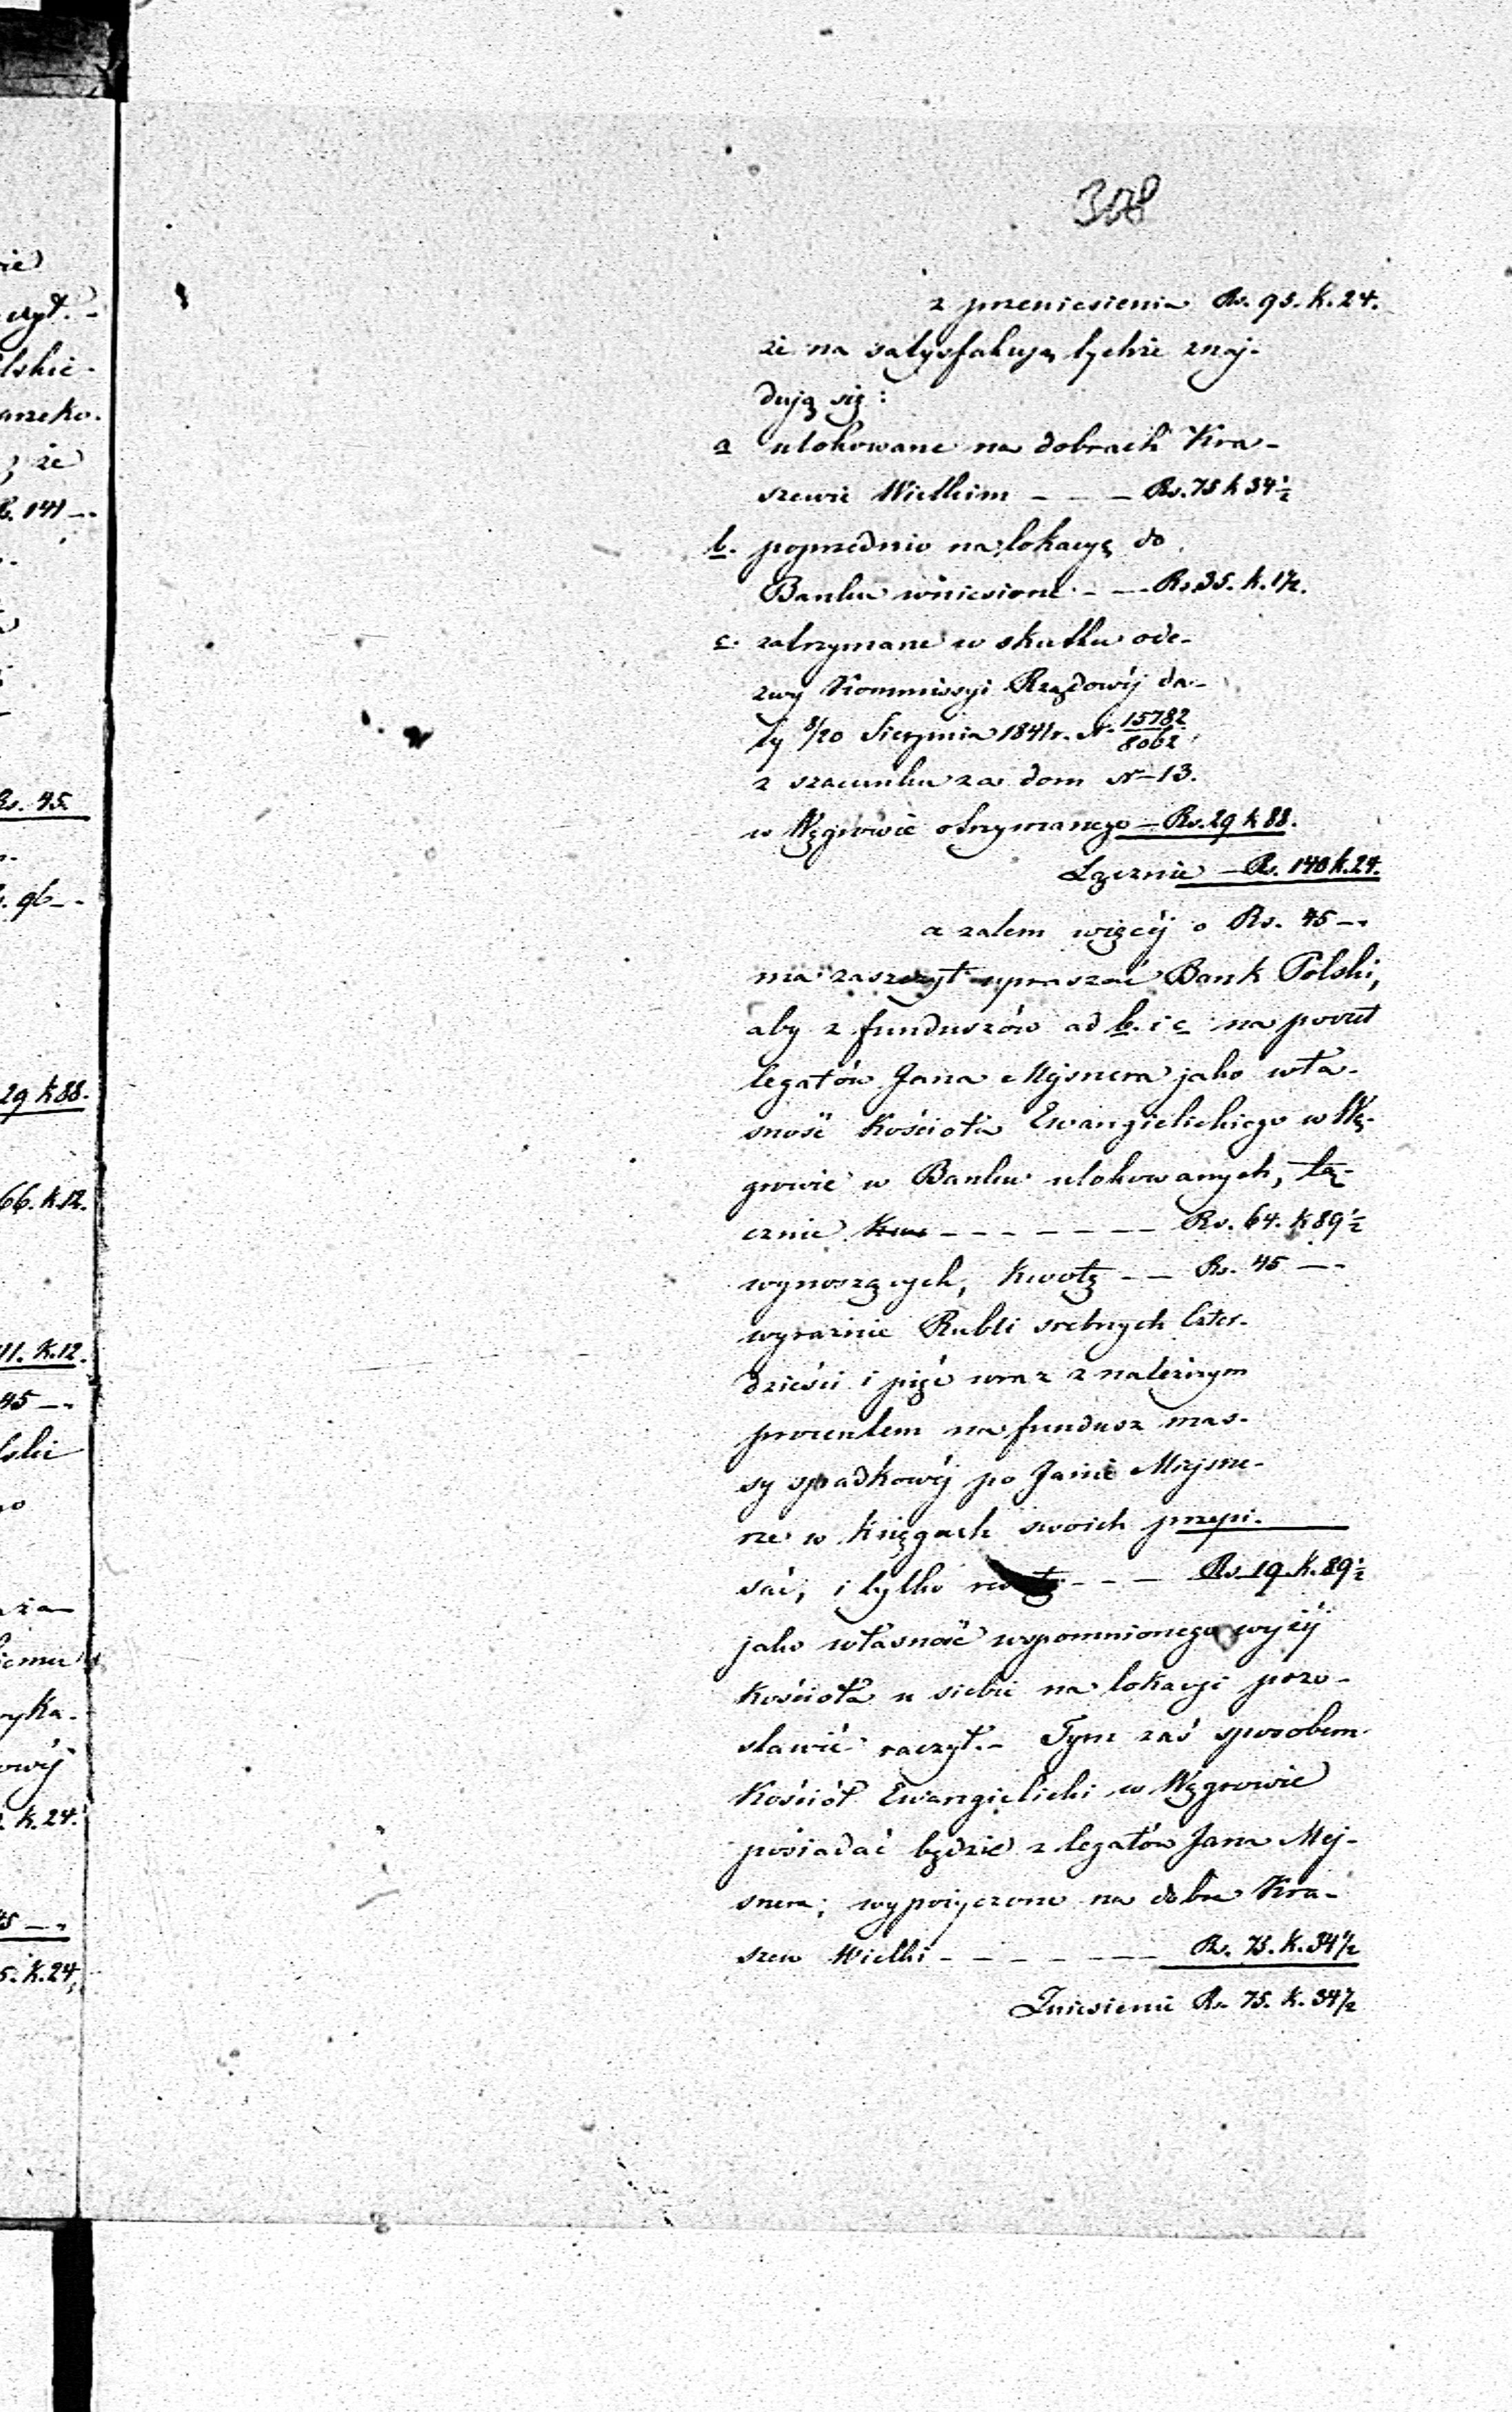 308
z przeniesienia Rs. 95. k. 24.
że na satysfakcyą tychże znaj-
dują się:
a ulokowane na dobrach Kra-
szewie Wielkim - - - Rs. 75 k 34 1/2
b. poprzednio na lokacyę do
Banku wniesione - - Rs. 35. k. 1 1/2.
c. zatrzymane w skutku ode-
zwy Kommissyi Rządowéj da-
ty 8/20 Sierpnia 1841 r. N. 15782/8062
z szacunku za dom N 13.
w Węgrowie otrzymanego - Rs. 29 k 88.
Łącznie - Rs. 140 k. 24.
a zatem więcéj o Rs. 45 -.
ma zaszczyt upraszać Bank Polski,
aby z funduszów ad b. i c na poczet
legatów Jana Mejsnera jako wła-
sność Kościoła Ewangielickiego w Wę-
growie w Banku ulokowanych, łą-
cznie - - - - - - Rs. 64. k 89 1/2
wynoszących, kwotę - - Rs. 45 -.
wyraźnie Rubli srebrnych czter-
dzieści i pięć wraz z należnym
procentem na fundusz mas-
sy spadkowéj po Janie Mejsne-
rze w księgach swoich przepi-
sać, i tylko - - - Rs. 19. k. 89 1/2
jako własność wspomnionego wyżéj
Kościoła u siebie na lokacyi pozo-
stawić raczył. - Tym zaś sposobem
Kościół Ewangielicki w Węgrowie
posiadać będzie z legatów Jana Mej-
snera; wypożyczone na dobra Kra-
szew Wielki - - - - - - Rs. 75. k. 34 1/2
Zniesienie Rs. 75. k. 34 1/2